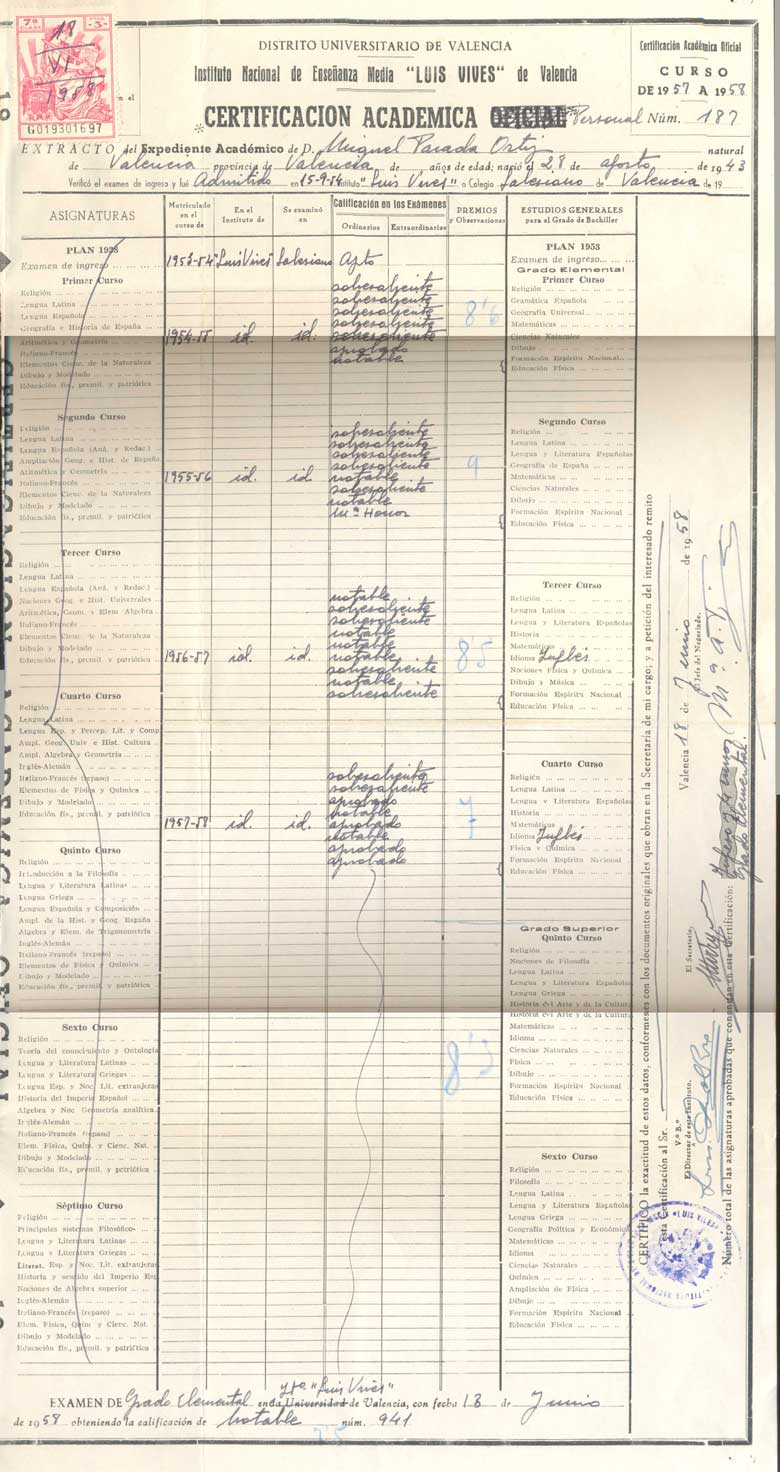 7ª CLASE
PTAS 3
18
VI
1958
G019301697
DISTRITO UNIVERSITARIO DE VALENCIA
Instituto Nacional de Enseñanza Media "LUIS VIVES" de Valencia
CERTIFICACION ACADEMICA OFICIAL Personal Núm. 187
Certificación Académica Oficial
CURSO
DE 1957 A 1958
EXTRACTO del Expediente Académico de D. Miguel Parada Ortiz natural
de Valencia provincia de Valencia de años de edad; nació el 28 de agosto de 1943
Verificó el examen de ingreso y fué Admitido en 15-9-54 Instituto "Luis Vives" o Colegio Salesiano de Valencia de 19
ASIGNATURAS
Matriculado en el curso de
En el Instituto de
Se examinó en
Calificación en los Exámenes
Ordinarios Extraordinarios
PREMIOS y Observaciones
ESTUDIOS GENERALES para el Grado de Bachiller
PLAN 1938
Examen de ingreso
1953-54 "Luis Vives" Salesiano Apto
Primer Curso
Religión
Lengua Latina
Lengua Española
Geografía e Historia de España
Aritmética y Geometría
Italiano-Francés
Elementos Cienc. de la Naturaleza
Dibujo y Modelado
Educación fís., premil. y patriótica
1954-55 id. id.
sobresaliente
sobresaliente
sobresaliente
sobresaliente
sobresaliente
aprobado
notable
8'6
Segundo Curso
Religión
Lengua Latina
Lengua Española (Aná. y Redac.)
Ampliación Geog. e Hist. de España
Aritmética y Geometría
Italiano-Francés
Elementos Cienc. de la Naturaleza
Dibujo y Modelado
Educación fís., premil. y patriótica
1955-56 id. id.
sobresaliente
sobresaliente
sobresaliente
sobresaliente
notable
sobresaliente
notable
Mª Honor
9
Tercer Curso
Religión
Lengua Latina
Lengua Española (Aná. y Redac.)
Nociones Geog. e Hist. Universales
Aritmética, Geom. y Elem. Algebra
Italiano-Francés
Elementos Cienc. de la Naturaleza
Dibujo y Modelado
Educación fís., premil. y patriótica
1956-57 id. id.
notable
sobresaliente
sobresaliente
notable
notable
notable
sobresaliente
notable
sobresaliente
8'5
Cuarto Curso
Religión
Lengua Latina
Lengua Esp. y Percep. Lit. y Comp
Ampl. Geog. Univ e Hist. Cultura
Ampl. Algebra y Geometría
Inglés-Alemán
Italiano-Francés (repaso)
Elementos de Física y Química
Dibujo y Modelado
Educación fís., premil. y patriótica
1957-58 id. id.
sobresaliente
sobresaliente
aprobado
notable
aprobado
notable
aprobado
aprobado
Quinto Curso
Religión
Introducción a la Filosofía
Lengua y Literatura Latinas
Lengua Griega
Lengua Española y Composición
Ampl. de la Hist. y Geog. España
Algebra y Elem. de Trigonometría
Inglés-Alemán
Italiano-Francés (repaso)
Elementos de Física y Química
Dibujo y Modelado
Educación fís., premil. y patriótica
Sexto Curso
Religión
Teoría del conocimiento y Ontología
Lengua y Literatura Latinas
Lengua y Literatura Griegas
Lengua Esp. y Noc. Lit. extranjeras
Historia del Imperio Español
Algebra y Noc. Geometría analítica
Inglés-Alemán
Italiano-Francés (repaso)
Elem. Física, Quím. y Cienc. Nat.
Dibujo y Modelado
Educación fís., premil. y patriótica
Séptimo Curso
Religión
Principales sistemas Filosóficos
Lengua y Literatura Latinas
Lengua y Literatura Griegas
Literat. Esp. y Noc. Lit. extranjeras
Historia y sentido del Imperio Esp
Nociones de Algebra superior
Inglés-Alemán
Italiano-Francés (repaso)
Elem. Física, Quím y Cienc. Nat.
Dibujo y Modelado
Educación fís., premil. y patriótica
PLAN 1953
Examen de ingreso
Grado Elemental
Primer Curso
Religión
Gramática Española
Geografía Universal
Matemáticas
Ciencias Naturales
Dibujo
Formación Espíritu Nacional
Educación Física
Segundo Curso
Religión
Lengua Latina
Lengua y Literatura Españolas
Geografía de España
Matemáticas
Ciencias Naturales
Dibujo
Formación Espíritu Nacional
Educación Física
Tercer Curso
Religión
Lengua Latina
Lengua y Literatura Españolas
Historia
Matemáticas
Idioma Inglés
Nociones Física y Química
Dibujo y Música
Formación Espíritu Nacional
Educación Física
Cuarto Curso
Religión
Lengua Latina
Lengua y Literatura Españolas
Historia
Matemáticas
Idioma Inglés
Física y Química
Formación Espíritu Nacional
Educación Física
Grado Superior
Quinto Curso
Religión
Nociones de Filosofía
Lengua Latina
Lengua y Literatura Españolas
Lengua Griega
Historia del Arte y de la Cultura
Matemáticas
Idioma
Ciencias Naturales
Física
Dibujo
Formación Espíritu Nacional
Educación Física
Sexto Curso
Religión
Filosofía
Lengua Latina
Lengua y Literatura Españolas
Lengua Griega
Geografía Política y Económica
Matemáticas
Idioma
Ciencias Naturales
Química
Ampliación de Física
Dibujo
Formación Espíritu Nacional
Educación Física
CERTIFICO la exactitud de estos datos, conformes con los documentos originales que obran en la Secretaría de mi cargo; y a petición del interesado remito
esta Certificación al Sr.
Valencia 18 de Junio de 1958
V.º B.º
El Director de este Instituto,
El Secretario,
El Jefe del Negociado,
Número total de las asignaturas aprobadas que constan en esta Certificación:
Grado Elemental.
EXAMEN DE Grado Elemental en la Universidad Ytº. "Luis Vives" de Valencia, con fecha 18 de Junio
de 1958 obteniendo la calificación de Notable núm. 941